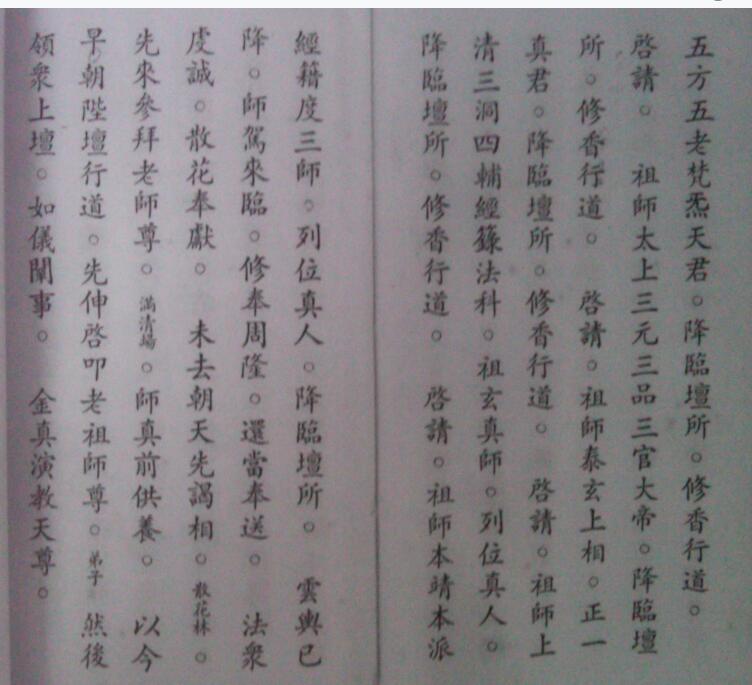 五方五老梵炁天君。降臨壇所。修香行道。
啓請。祖師太上三元三品三官大帝。降臨壇
所。修香行道。啓請。祖師泰玄上相。正一
真君。降臨壇所。修香行道。啓請。祖師上
清三洞四輔經籙法科。祖玄真師。列位真人。
降臨壇所。修香行道。啓請。祖師本靖本派
經籍度三師。列位真人。降臨壇所。雲輿已
降。師駕來臨。修奉周隆。還當奉送。法衆
虔誠。散花奉獻。未去朝天先謁相。散花林。
先來參拜老師尊。滿清場。師真前供養。以今
早朝陞壇行道。先伸啓叩老祖師尊。弟子然後
領衆上壇。如儀闡事。金真演教天尊。